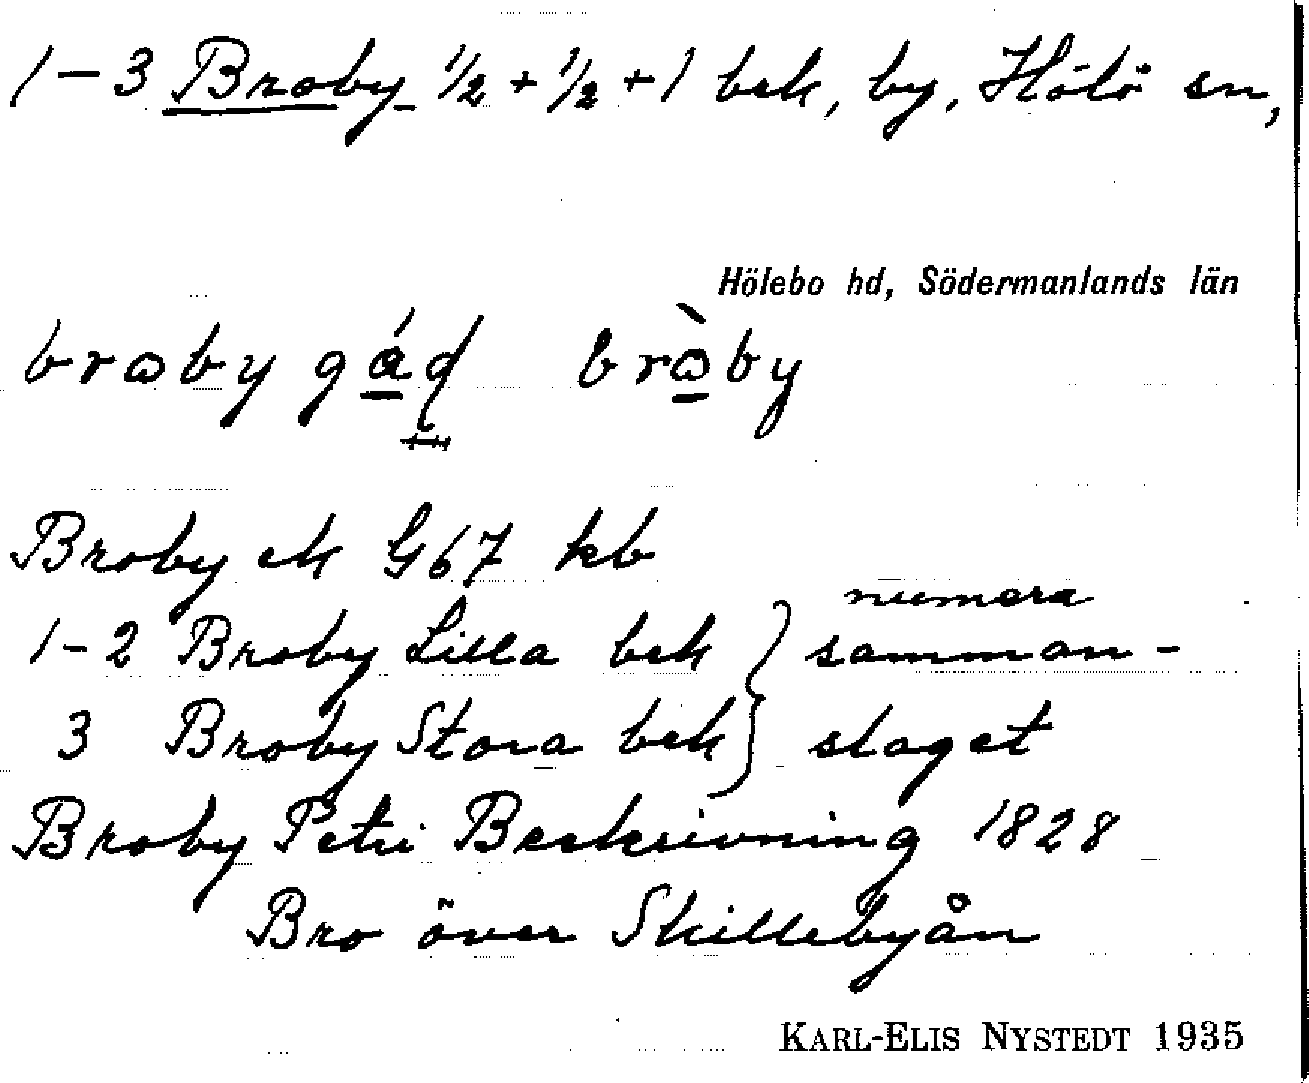 1-3 Broby ½ + ½ + 1 bek, by, Hölö sn,
Hölebo hd, Södermanlands län
broby gáḍ bròby
Broby ek G67 kb
numera
1-2 Broby Lilla bek } samman-
3 Broby Stora bek } slaget
Broby Petri Beskrivning 1828
Bro över Skillebyån
KARL-ELIS NYSTEDT 1935